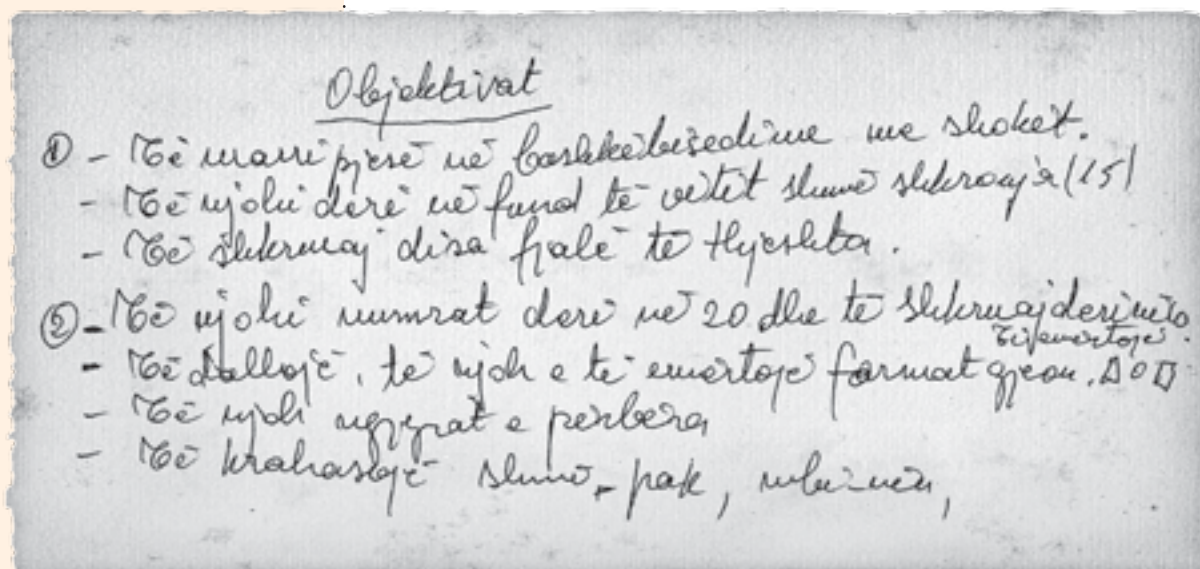 Objektivat
① - Të marri pjesë në bashkëbisedime me shokët.
- Të njohi deri në fund të vitit shumë shkronja (15)
- Të shkruaj disa fjalë të thjeshta.
② - Të njohi numrat deri në 20 dhe të shkruaj deri në 10.
të emërtojë
- Të dallojë, të njoh e të emërtojë format gjeom. △○□
- Të njoh ngjyrat e përbëra
- Të krahasojë shumë - pak, mbi-nën,